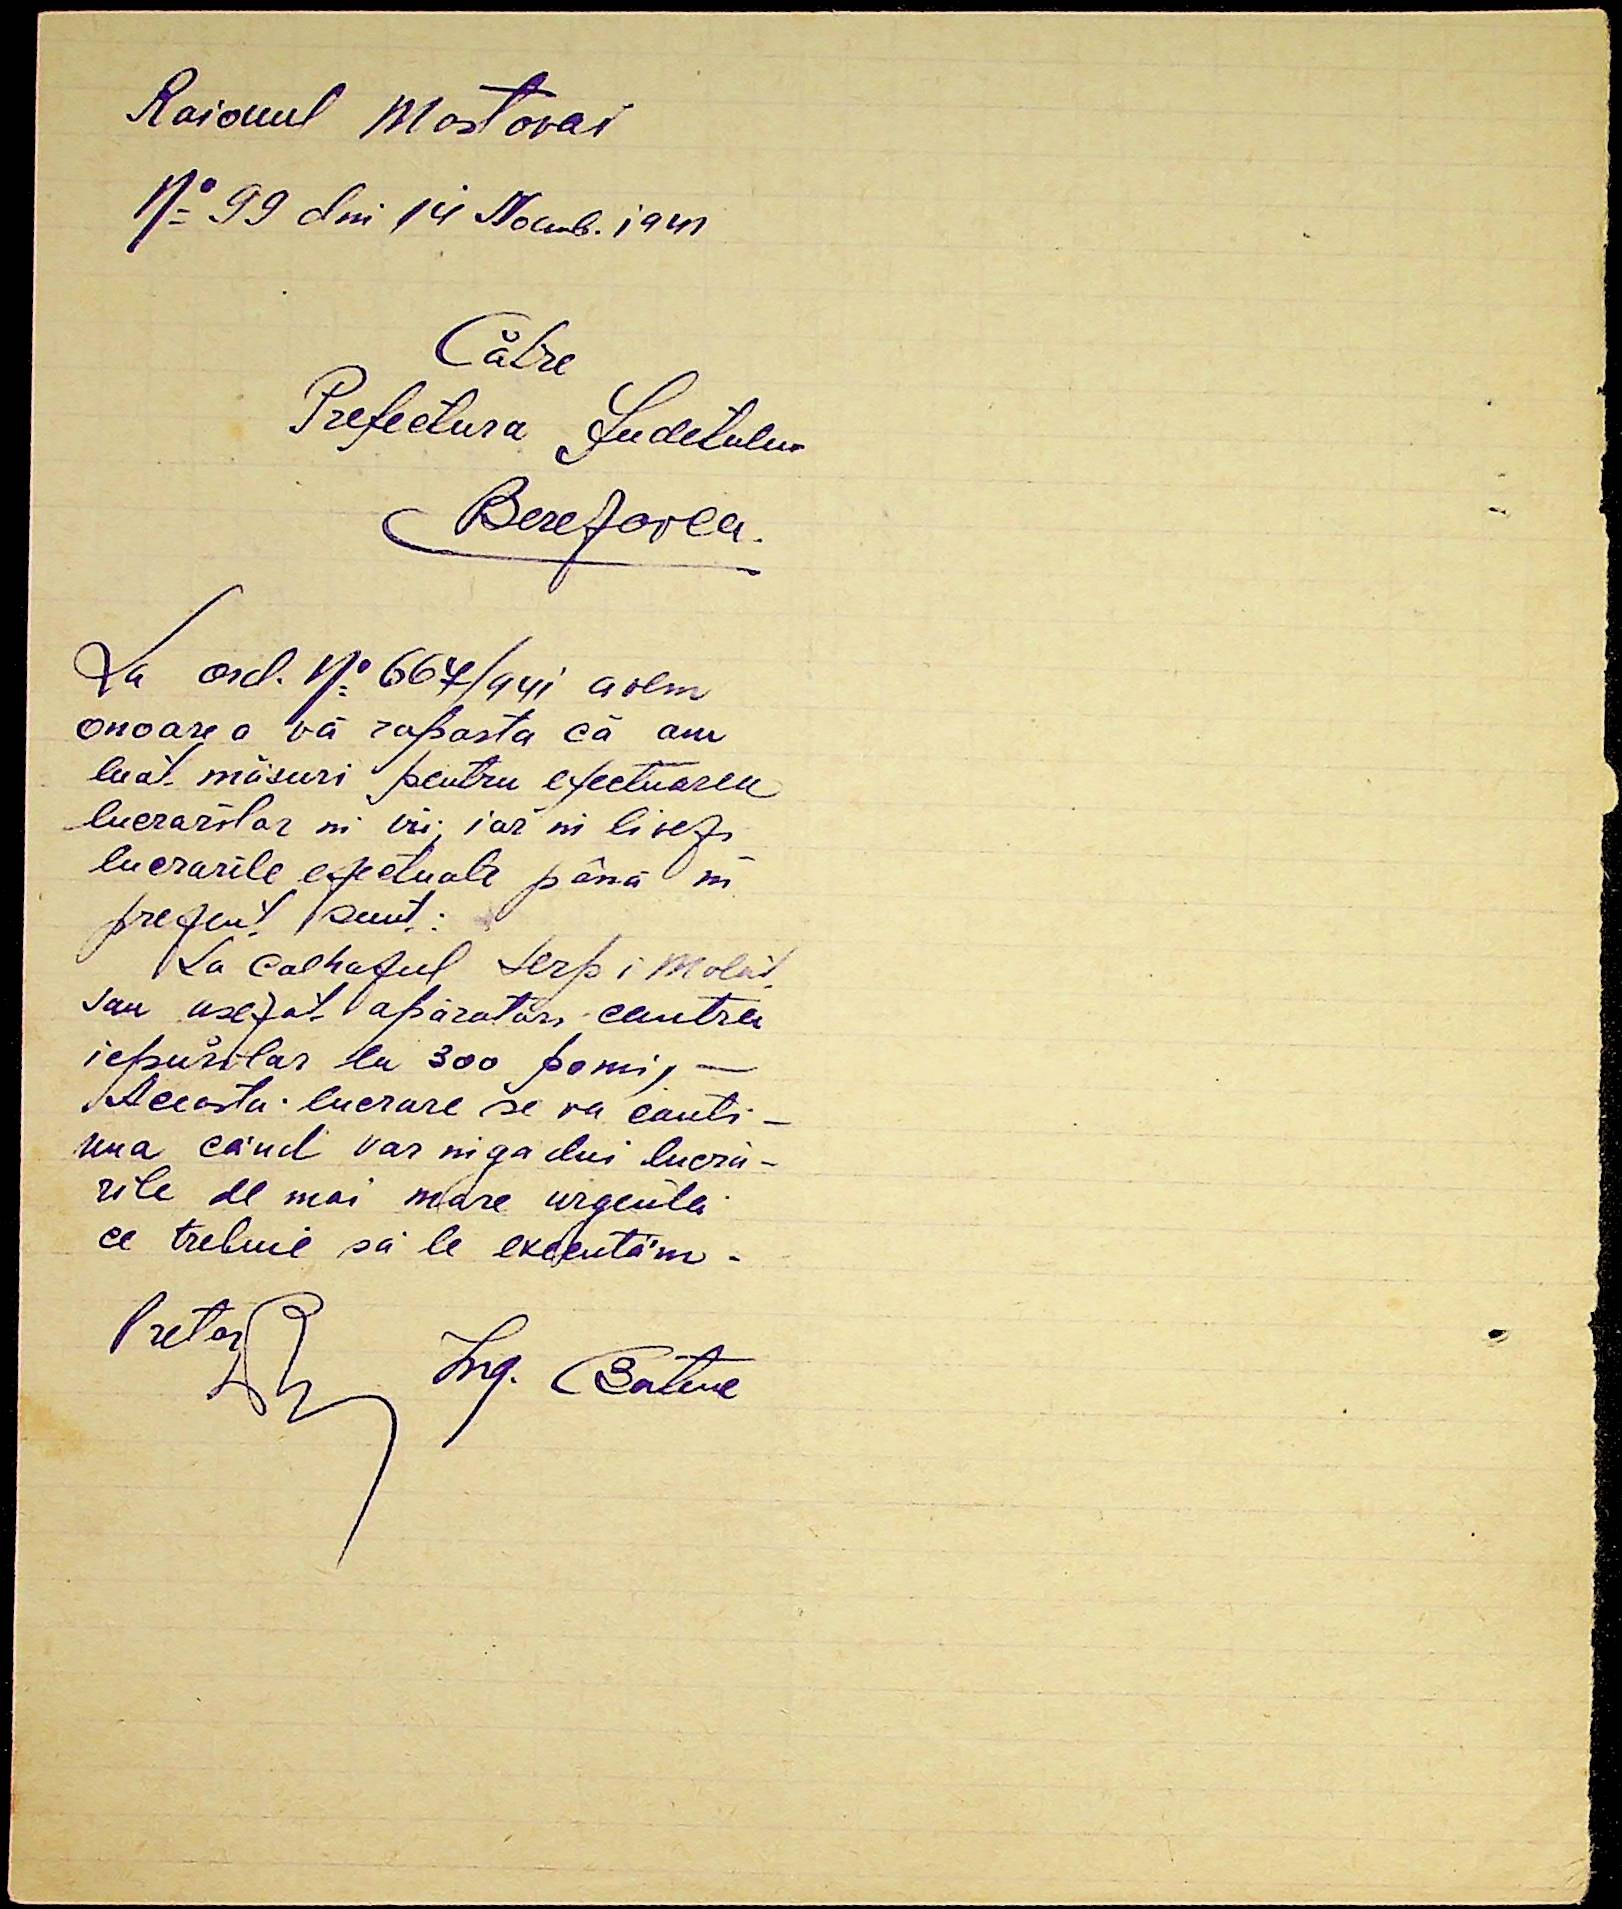 Raionul Mostovoi
Nº 99 din 14 Noemb. 1941
Către
Prefectura Judetului
Berezovca.
La ord. Nº 667/941 avem
onoarea vă raporta că am
luat măsuri pentru efectuarea
lucrărilor în vii, iar în livezi
lucrările efectuate până în
prezent sunt:
La colhozul Serp i Molot
sau asezat apărători contra
iepurilor la 300 pomi, —
Aceasta lucrare se va conti-
nua când vor îngădui lucră-
rile de mai mare urgentă
ce trebuie să le executăm -
Pretor
Ing.